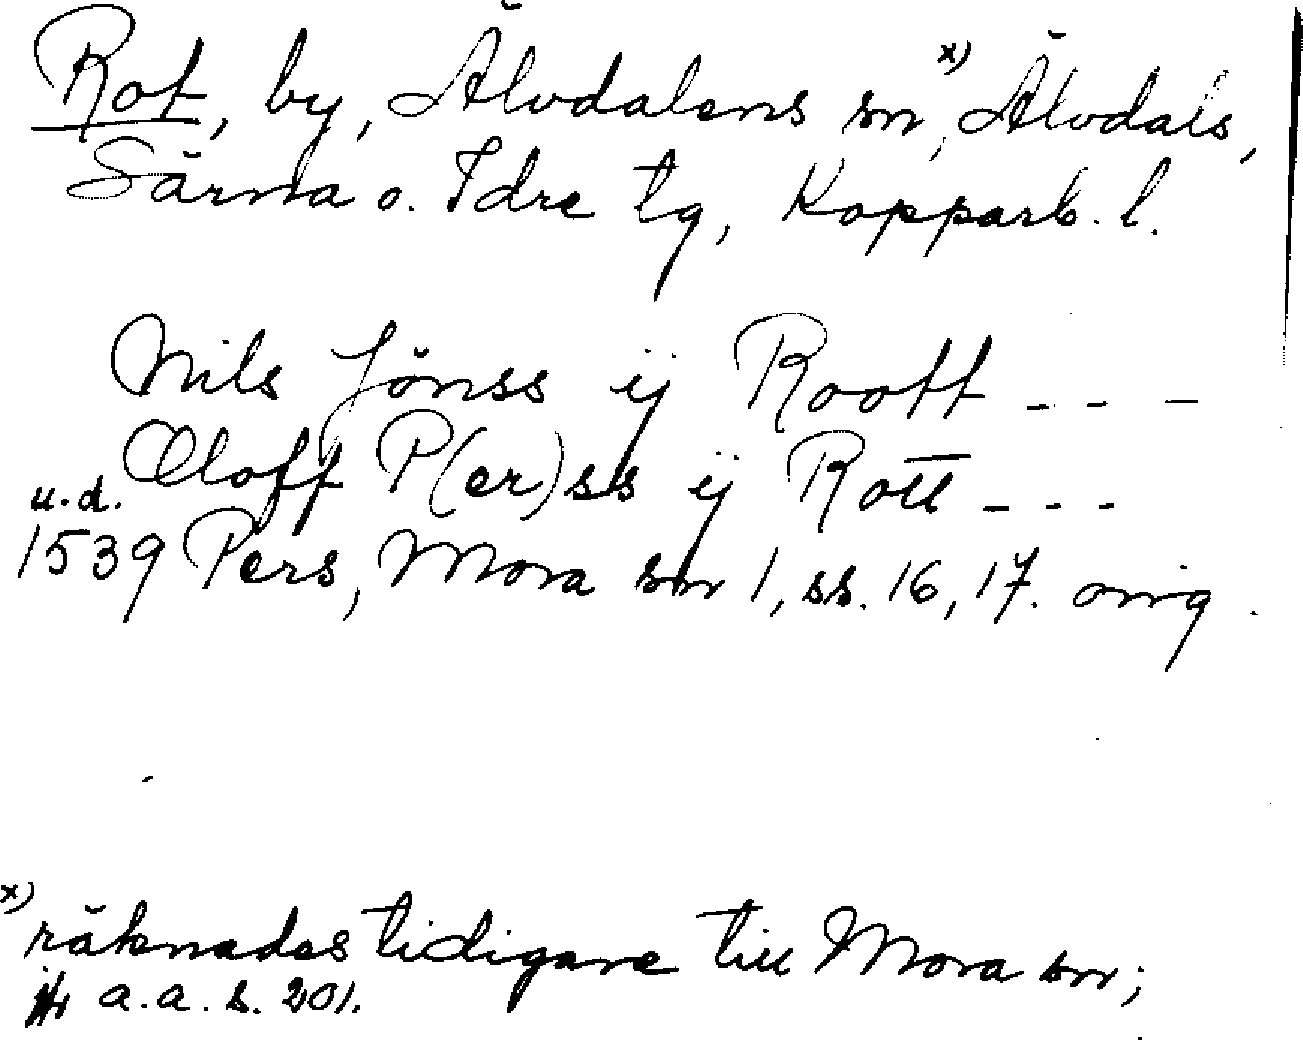 Rot, by, Älvdalens sn, x) Älvdals,
Särna o. Idre tg, Kopparb. l.
Nils Jönss ij Roott - - -
Oloff P(er)ss ij Rott - - -
u.d.
1539 Pers, Mora sn 1, ss. 16, 17. orig.
x) räknades tidigare till Mora sn;
jfr a.a. s. 201.